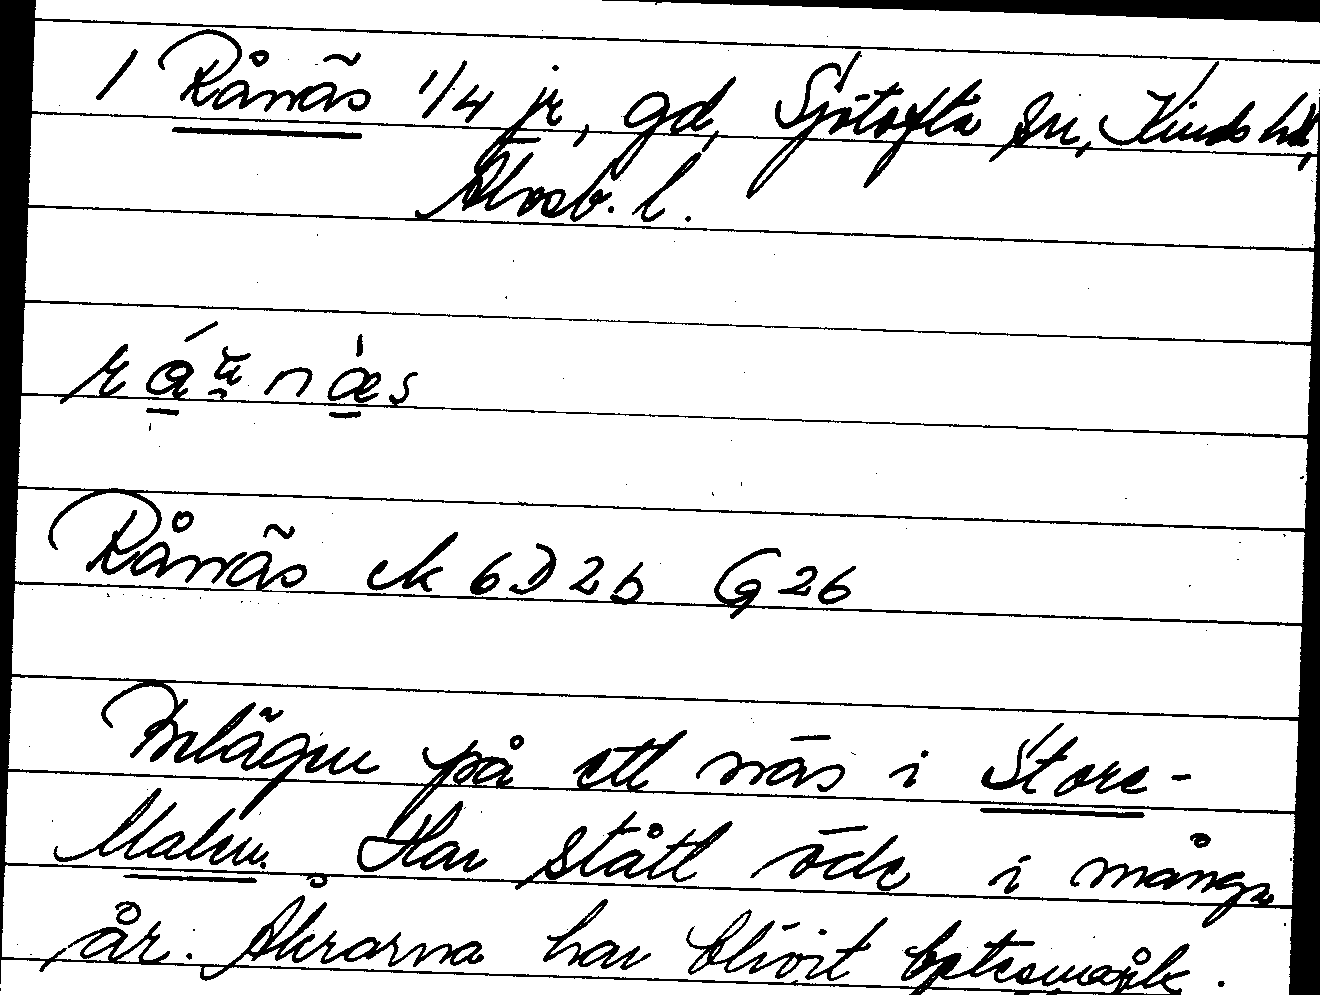 1 Rånäs 1/4 jr, gd, Sjötofta sn, Kinds hd,
Älvsb. l.
Rånäs ek 6D2b G26
Belägen på ett näs i Store-
Malen. Har stått öde i många
år. Åkrarna har blivit betesmark.